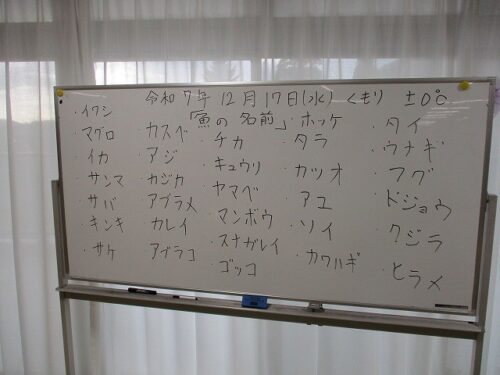 令和7年12月17日(水) くもり ±0℃
「魚の名前」
・イワシ
・マグロ
・イカ
・サンマ
・サバ
・キンキ
・サケ
・カスベ
・アジ
・カジカ
・アブラメ
・カレイ
・アブラコ
・チカ
・キュウリ
・ヤマベ
・マンボウ
・スナガレイ
・ゴッコ
・ホッケ
・タラ
・カツオ
・アユ
・ソイ
・カワハギ
・タイ
・ウナギ
・フグ
・ドジョウ
・クジラ
・ヒラメ